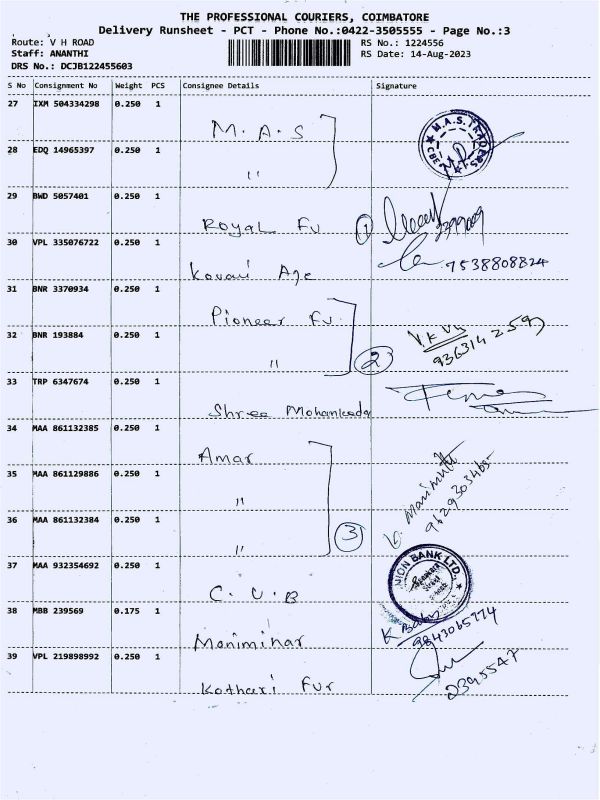 THE PROFESSIONAL COURIERS, COIMBATORE
Delivery Runsheet - PCT - Phone No.:0422-3505555 - Page No.:3
Route: V H ROAD RS No.: 1224556
Staff: ANANTHI RS Date: 14-Aug-2023
DRS No.: DCJB122455603
S No Consignment No Weight PCS Consignee Details Signature
27 IXM 504334298 0.250 1 M.A.S M.A.S. TRADERS CBE
28 EDQ 14965397 0.250 1 "
29 BWD 5057401 0.250 1 Royal Fu 1
30 VPL 335076722 0.250 1 Kovai Age 7538808824
31 BNR 3370934 0.250 1 Pioneer Fu.
32 BNR 193884 0.250 1 " 2
33 TRP 6347674 0.250 1 Shree Mohankada
34 MAA 861132385 0.250 1 Amar
35 MAA 861129886 0.250 1 "
36 MAA 861132384 0.250 1 " 3
37 MAA 932354692 0.250 1 C.U.B NION BANK LTD.
38 MBB 239569 0.175 1 Manimihar K Babu 9843065774
39 VPL 219898992 0.250 1 Kothari Fur 2395547